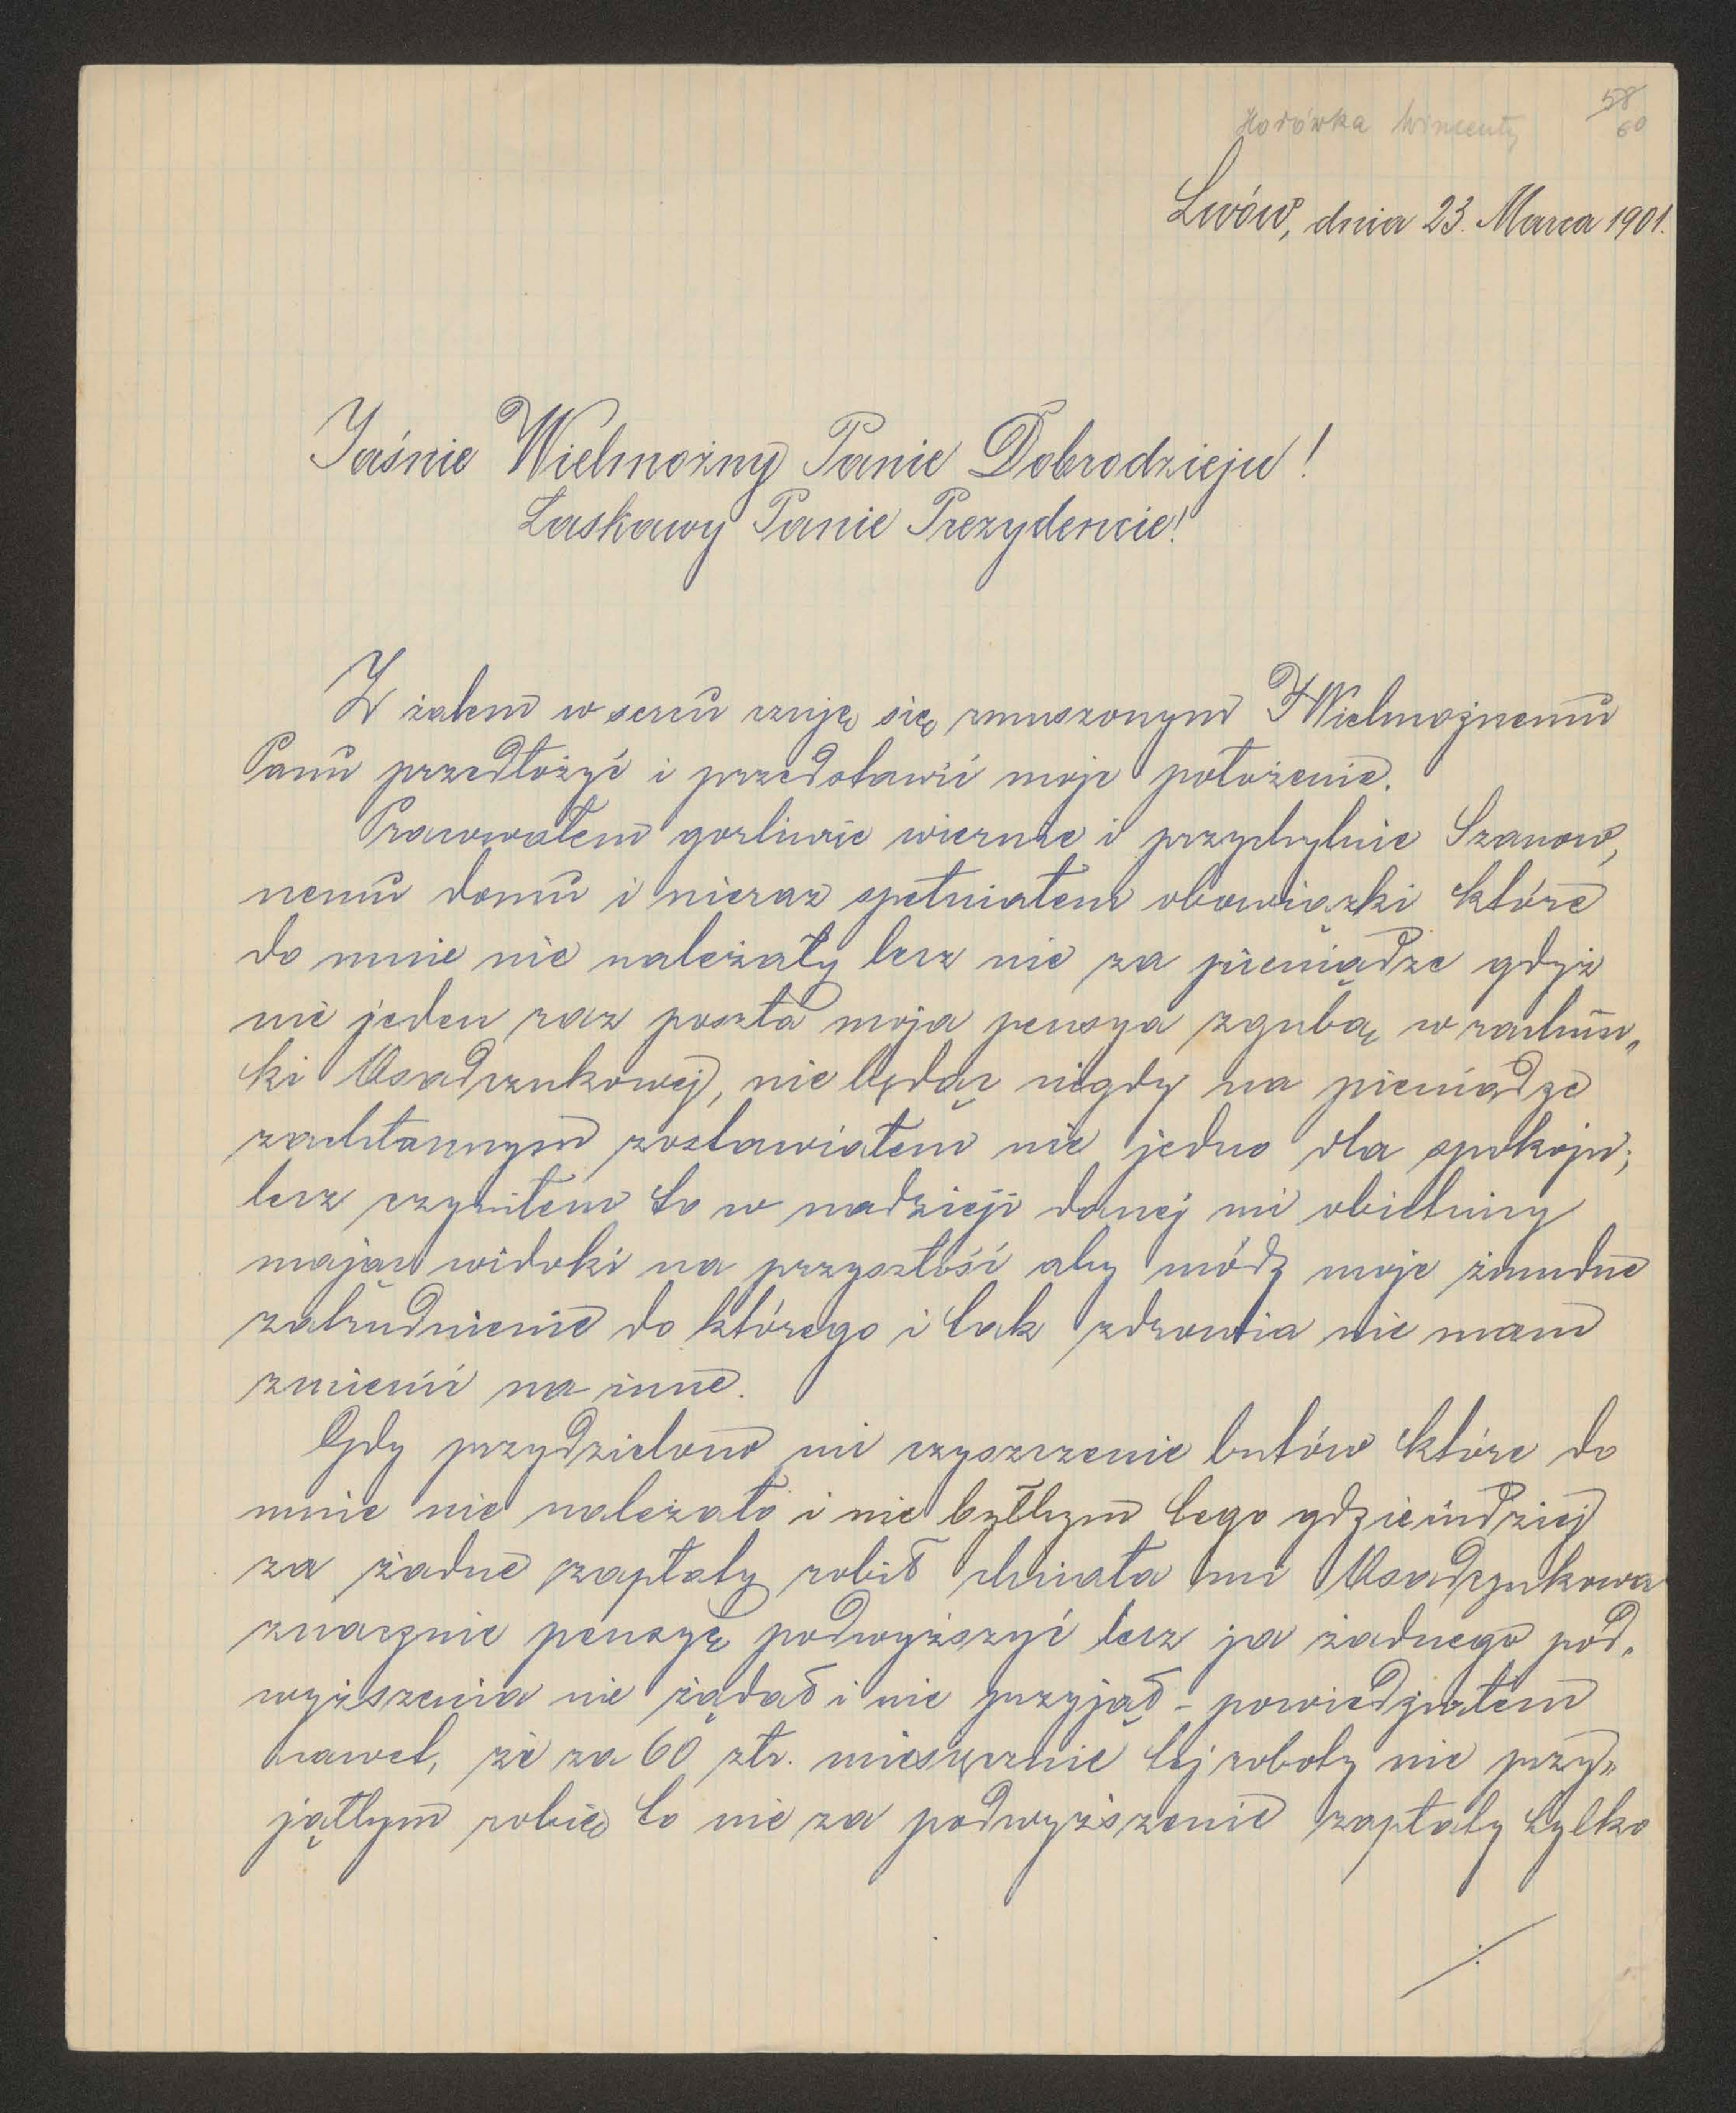 Horówka Wincenty
58
60
Lwów, dnia 23. Marca 1901.
Jaśnie Wielmożny Panie Dobrodzieju!
Łaskawy Panie Prezydencie!
Z żalem w sercu czuję się zmuszonym JWielmożnemu
Panu przedłożyć i przedstawić moje położenie.
Pracowałem gorliwie wiernie i przychylnie Szanow„
nemu domu i nieraz spełniałem obowiązki które
do mnie nie należały lecz nie za pieniądze gdyż
nie jeden raz poszła moja pensya zgubą w rachun„
ki Osadzukowej, nie będąc nigdy na pieniądze
zachłannym zostawiałem nie jedno dla spokoju;
lecz czyniłem to w nadzieji danej mi obietnicy
mając widoki na przyszłość aby módz moje żmudne
zatrudnienie do którego i tak zdrowia nie mam
zmienić na inne.
Gdy przydzielono mi czyszczenie butów które do
mnie nie należało i nie byłbym tego gdzieindziej
za żadne zapłaty robił chciała mi Osadzukowa
znacznie pensyę podwyższyć lecz ja żadnego pod„
wyższenia nie żądał i nie przyjął - powiedziałem
nawet, że za 60 złr. miesięcznie tej roboty nie przy„
jąłbym robię to nie za podwyższenie zapłaty tylko
./.